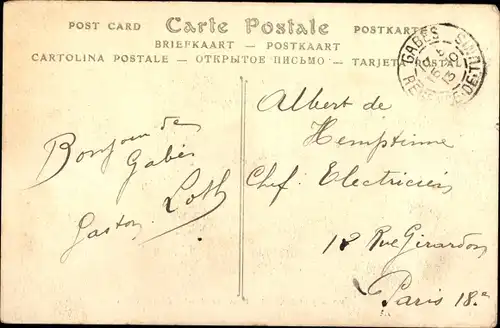 POST CARD Carte Postale POSTKARTE
BRIEFKAART — POSTKAART
CARTOLINA POSTALE — ОТКРЫТОЕ ПИСЬМО — TARJETA POSTAL
GABES
Bonjour de
Gabès
Gaston Loth
Albert de
Hemptinne
Chef. Electricien
18 Rue Girardon
Paris 18e